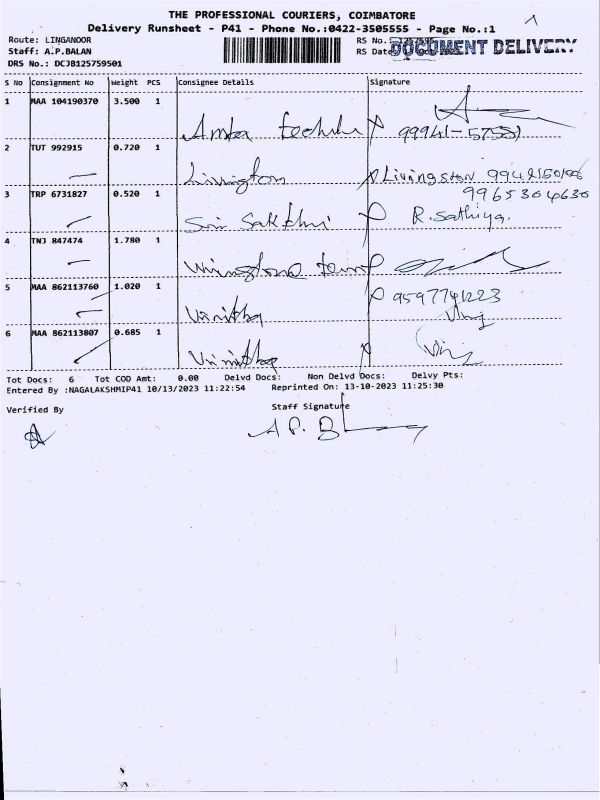 THE PROFESSIONAL COURIERS, COIMBATORE
Delivery Runsheet - P41 - Phone No.:0422-3505555 - Page No.:1
Route: LINGANOOR RS No.:
Staff: A.P.BALAN RS Date DOCUMENT DELIVERY
DRS No.: DCJB125759501
S No Consignment No Weight PCS Consignee Details Signature
1 MAA 104190370 3.500 1
Amba 99941-57551
2 TUT 992915 0.720 1
Livington Livingston 9942150106
9965304630
3 TRP 6731827 0.520 1
Sri Sakthi R. Sathiya.
4 TNJ 847474 1.780 1
5 MAA 862113760 1.020 1 9597741223
Vinitha
6 MAA 862113807 0.685 1
Vinitha
Tot Docs: 6 Tot COD Amt: 0.00 Delvd Docs: Non Delvd Docs: Delvy Pts:
Entered By :NAGALAKSHMIP41 10/13/2023 11:22:54 Reprinted On: 13-10-2023 11:25:30
Verified By Staff Signature
A.P. B